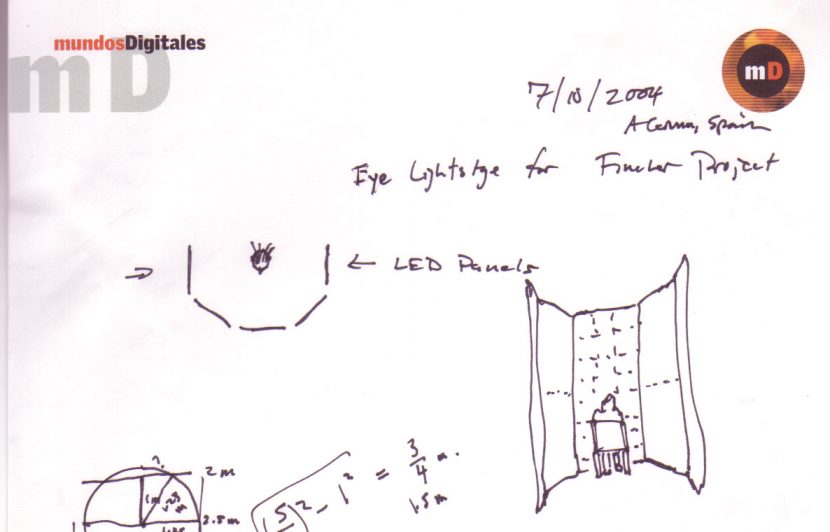 mundosDigitales
mD
mD
7/10/2004
A Coruna, Spain
Eye Lightstge for Fincher Project
← LED Panels
2 m
1 m
2.5 m
5)² - 1² = 3/4 m.
1.5 m